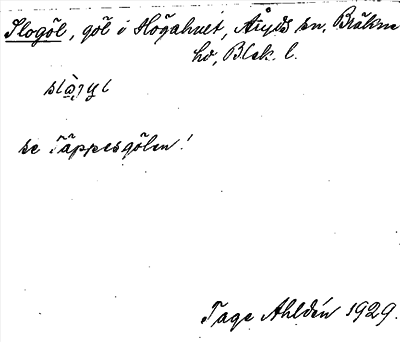 Slogöl, göl i Högahult, Åryds sn, Bräkne
hd, Blek. l.
se Täppesgölen!
Tage Ahldén 1929.